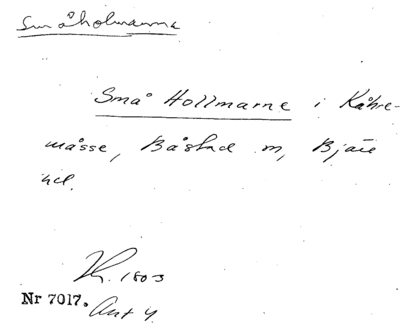 Småholmarna
Små Hollmarne i Kåhre-
måsse, Båstad m, Bjäre
hd.
1803
Nr 7017. Ant 4